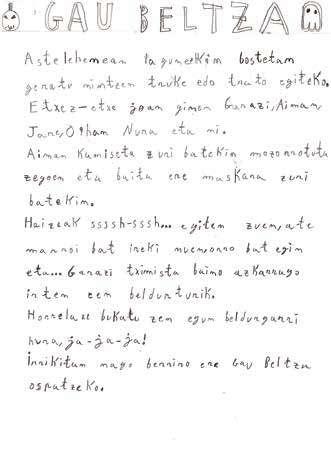 GAU BELTZA
Astelehenean lagunekin bostetan
geratu nintzen truke edo trato egiteko.
Etxez-etxe joan ginen Garazi, Aiman,
Jane, Oihan Nuna eta ni.
Aiman kamiseta zuri batekin mozorrotuta
zegoen eta baita ere maskara zuri
batekin.
Haizeak ssssh-sssh... egiten zuen, ate
marroi bat ireki nuen, orro bat egin
eta... Garazi tximista baino azkarrago
irten zen beldurturik.
Horrelaxe bukatu zen egun beldurgarri
hura, ja-ja-ja!
Irrikitan nago berriro ere Gau Beltza
ospatzeko.